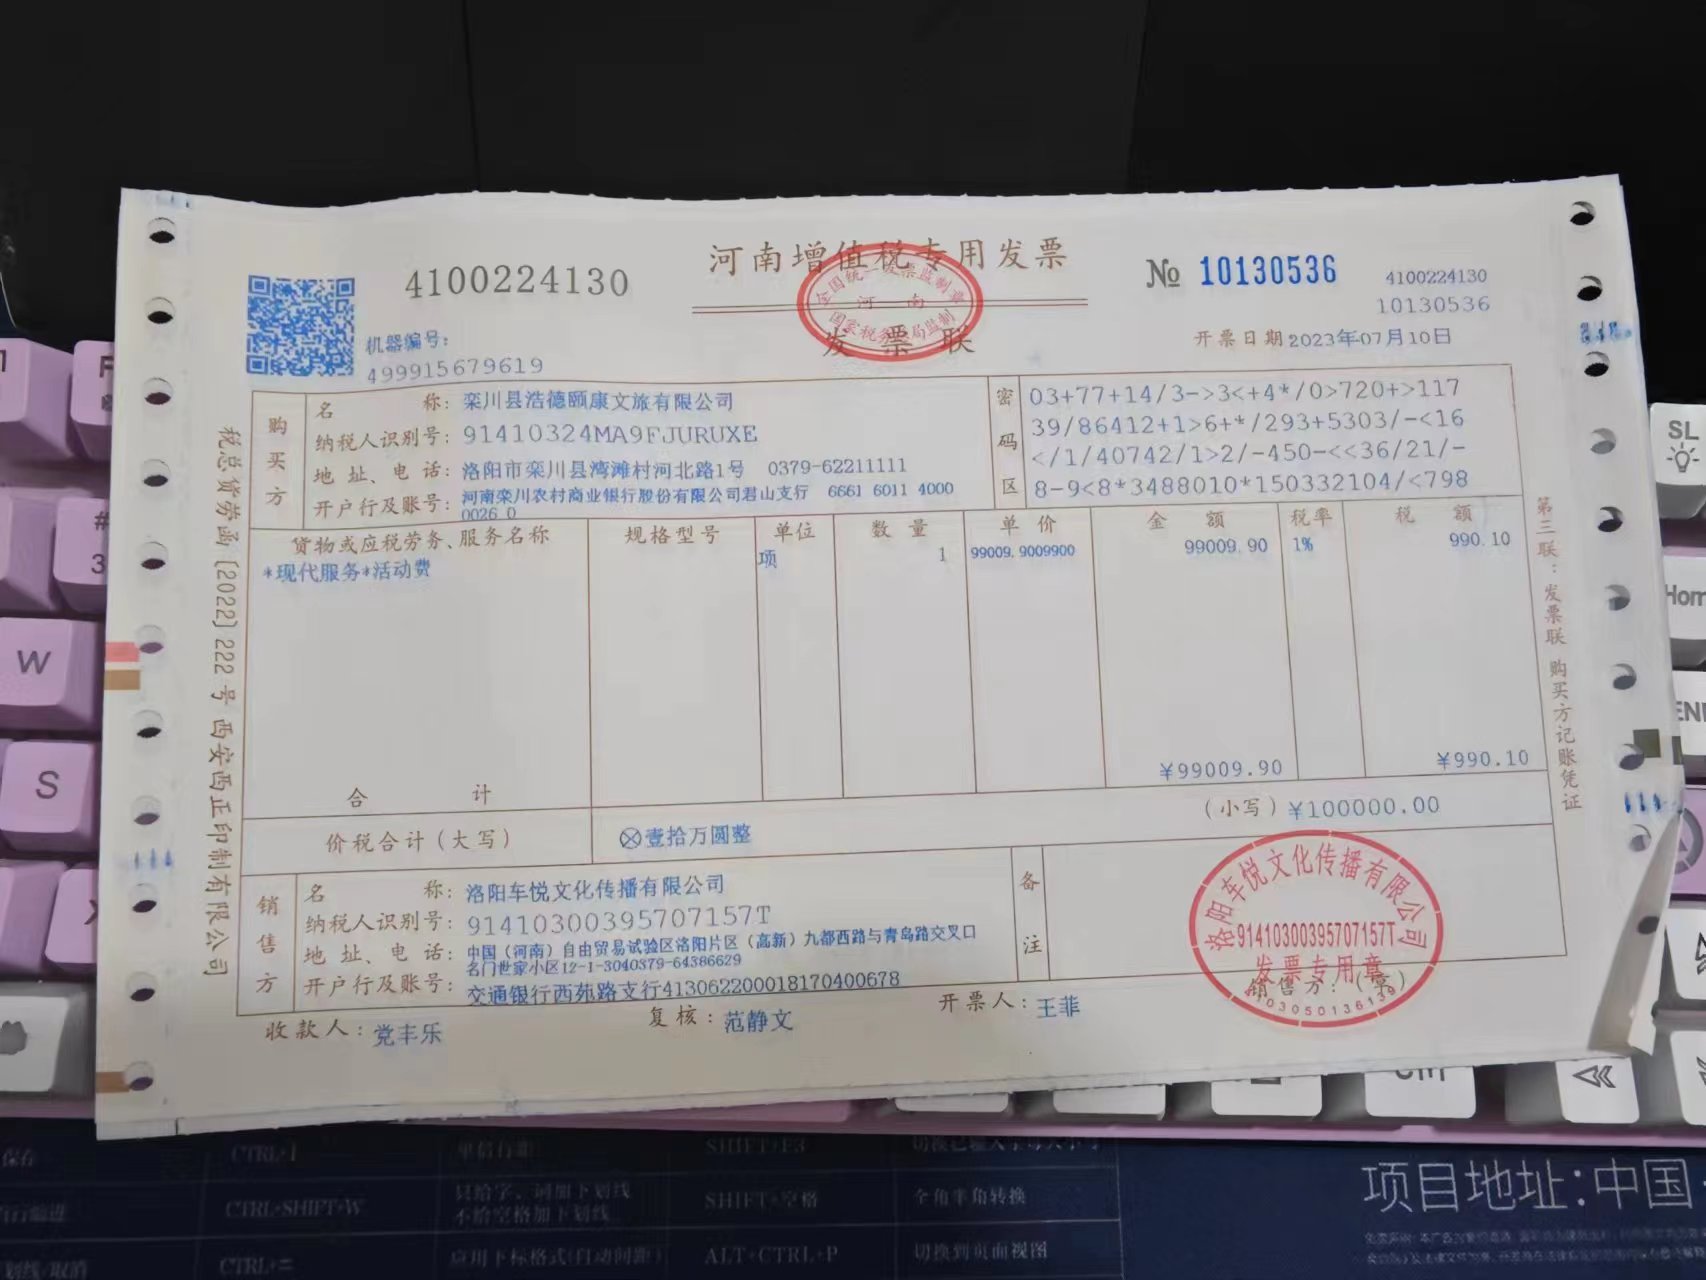 河南增值税专用发票
发票联
全国统一发票监制章
河南
国家税务总局监制
4100224130
№ 10130536
4100224130
10130536
机器编号:
499915679619
开票日期 2023年07月10日
税总货劳函〔2022〕222号 西安西正印制有限公司
购买方
名称: 栾川县浩德颐康文旅有限公司
纳税人识别号: 91410324MA9FJURUXE
地址、电话: 洛阳市栾川县湾滩村河北路1号 0379-62211111
开户行及账号: 河南栾川农村商业银行股份有限公司君山支行 6661 6011 4000
0026 0
密码区
03+77+14/3->3<+4*/0>720+>117
39/86412+1>6+*/293+5303/-<16
</1/40742/1>2/-450-<<36/21/-
8-9<8*3488010*150332104/<798
货物或应税劳务、服务名称 规格型号 单位 数量 单价 金额 税率 税额
*现代服务*活动费 项 1 99009.9009900 99009.90 1% 990.10
合计 ¥99009.90 ¥990.10
价税合计(大写) ⊗壹拾万圆整 (小写)¥100000.00
销售方
名称: 洛阳车悦文化传播有限公司
纳税人识别号: 91410300395707157T
地址、电话: 中国(河南)自由贸易试验区洛阳片区(高新)九都西路与青岛路交叉口
名门世家小区12-1-3040379-64386629
开户行及账号: 交通银行西苑路支行413062200018170400678
备注
收款人: 党丰乐 复核: 范静文 开票人: 王菲 销售方:(章)
洛阳车悦文化传播有限公司
91410300395707157T
发票专用章
4103050136139
第三联:发票联 购买方记账凭证
#
3
W
S
SL
Hom
保存 CTRL+1 单倍行距 SHIFT+F3
CTRL+SHIFT+W 只给字、词加下划线 SHIFT+空格 全角半角转换
不给空格加下划线
CTRL+= 应用下标格式(自动间距) ALT+CTRL+P 切换到页面视图
项目地址:中国